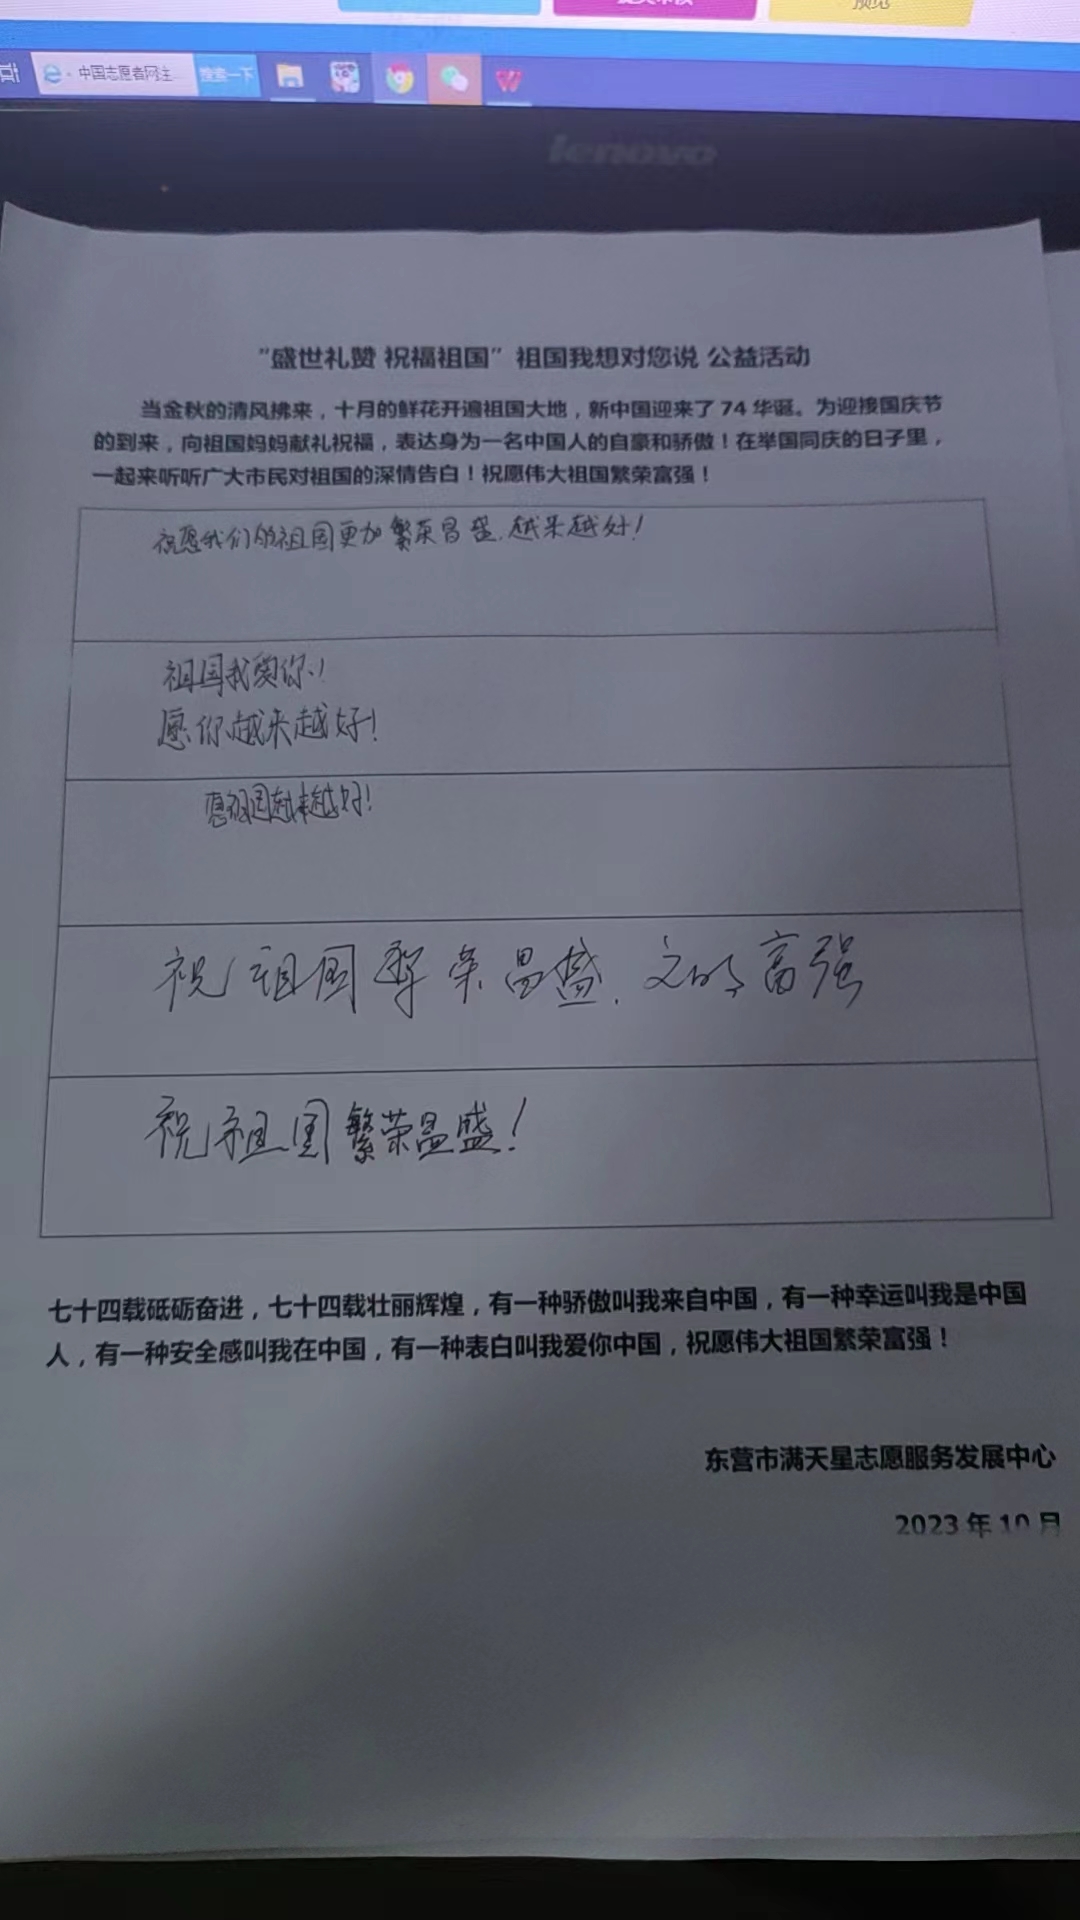 预览
中国志愿者网注...
搜索一下
lenovo
“盛世礼赞 祝福祖国”祖国我想对您说 公益活动
当金秋的清风拂来，十月的鲜花开遍祖国大地，新中国迎来了 74 华诞。为迎接国庆节
的到来，向祖国妈妈献礼祝福，表达身为一名中国人的自豪和骄傲！在举国同庆的日子里，
一起来听听广大市民对祖国的深情告白！祝愿伟大祖国繁荣富强！
祝愿我们的祖国更加繁荣昌盛.越来越好！
祖国我爱你！
愿你越来越好！
愿祖国越来越好！
祝祖国繁荣昌盛.文明富强
祝祖国繁荣昌盛！
七十四载砥砺奋进，七十四载壮丽辉煌，有一种骄傲叫我来自中国，有一种幸运叫我是中国
人，有一种安全感叫我在中国，有一种表白叫我爱你中国，祝愿伟大祖国繁荣富强！
东营市满天星志愿服务发展中心
2023 年 10 月